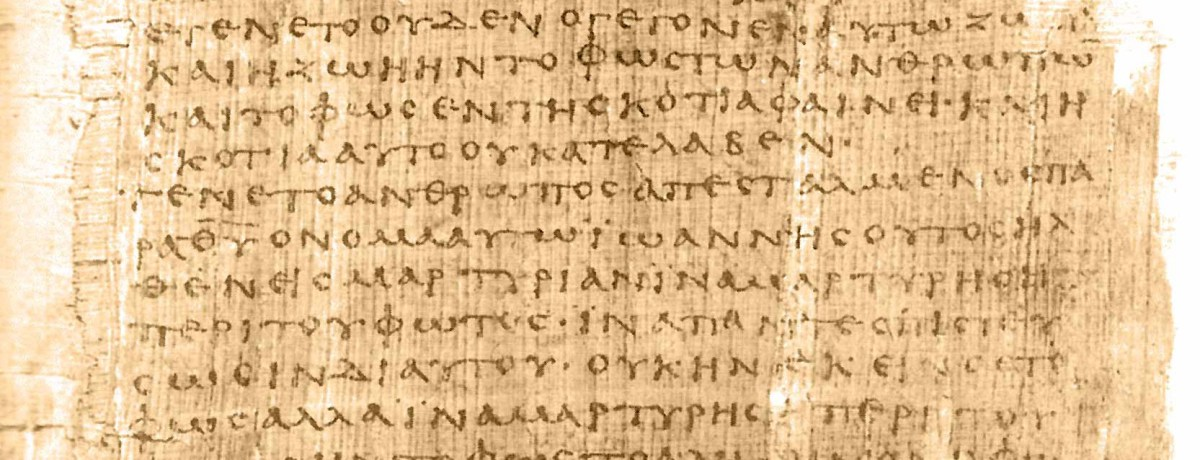 ΕΓΕΝΕΤΟΟΥΔΕΝ ΟΓΕΓΟΝΕΝ·ΑΥΤΩ ΖΩ
ΚΑΙΗΖΩΗΗΝΤΟ ΦΩΣΤΩΝΑΝΘΡΩΠΩ̅
ΚΑΙΤΟΦΩΣΕΝΤΗΣΚΟΤΙΑΦΑΙΝΕΙ·ΚΑΙΗ
ΣΚΟΤΙΑΑΥΤΟΟΥΚΑΤΕΛΑΒΕΝ·
·ΓΕΝΕΤΟΑΝΘΡΩΠΟΣΑΠΕΣΤΑΛΜΕΝΟΣΠΑ
ΡΑΘ̅Υ̅ΟΝΟΜΑΑΥΤΩΪΩΑΝΝΗΣΟΥΤΟΣΗΛ
ΘΕΝΕΙΣΜΑΡΤΥΡΙΑΝΪΝΑΜΑΡΤΥΡΗΣΗ
ΠΕΡΙΤΟΥΦΩΤΟΣ·ΪΝΑΠΑΝΤΕΣΠΙΣΤΕΥ
ΣΩΣΙΝΔΙΑΥΤΟΥ·ΟΥΚΗΝΕΚΕΙΝΟΣΤΟ
ΦΩΣΑΛΛΑΪΝΑΜΑΡΤΥΡΗΣΗ ΠΕΡΙΤΟΥ